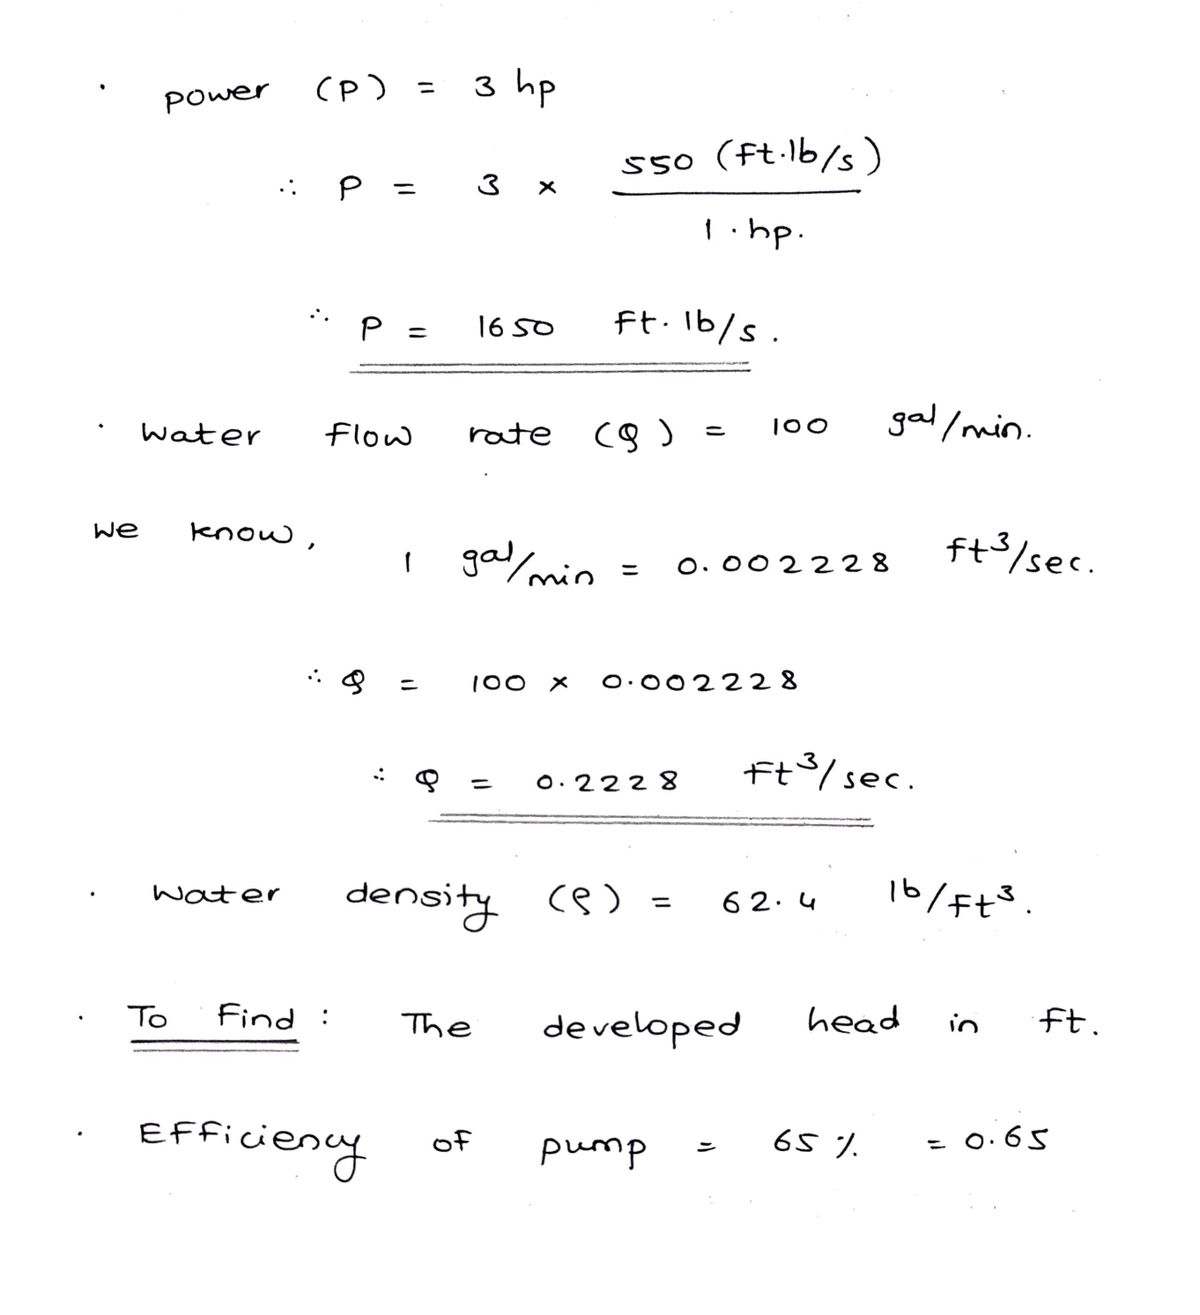 · power (P) = 3 hp
∴ P = 3 × 550 (ft.lb/s)
1 . hp.
∴ P = 1650 ft. lb/s.
· water flow rate (Q) = 100 gal/min.
we know, 1 gal/min = 0.002228 ft³/sec.
∴ Q = 100 × 0.002228
∴ Q = 0.2228 ft³/sec.
· water density (ρ) = 62.4 lb/ft³.
· To Find : The developed head in ft.
· Efficiency of pump = 65 % = 0.65